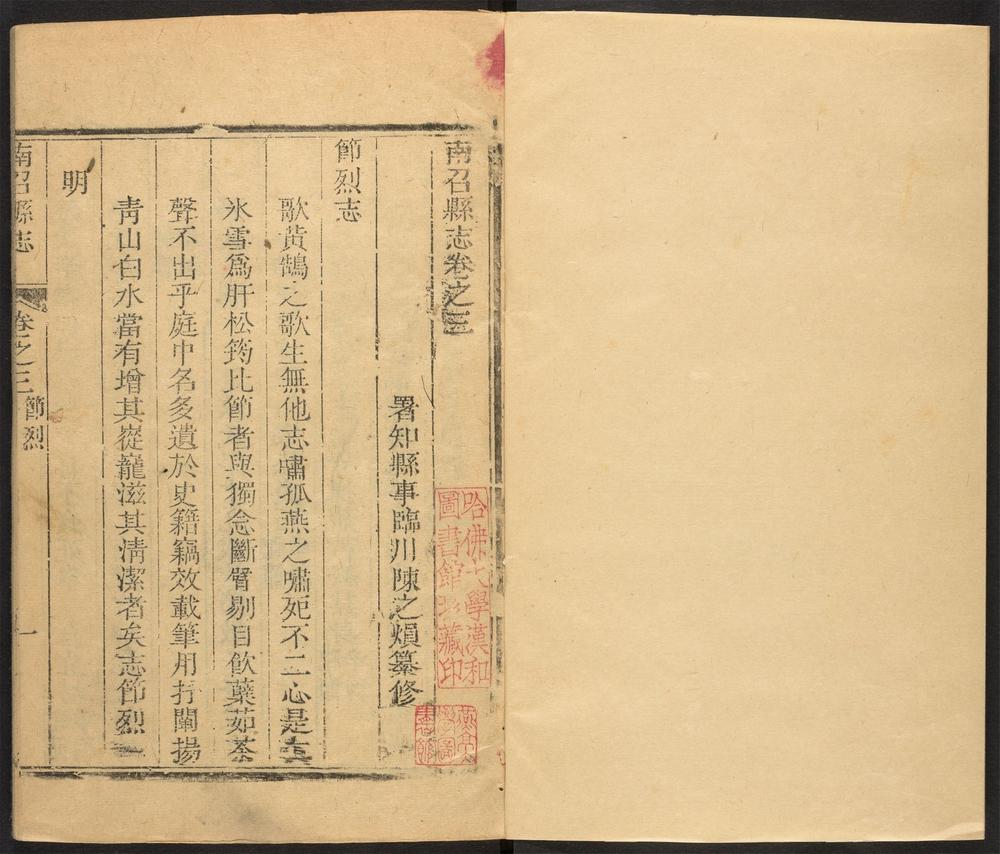 南召縣志卷之三
署知縣事臨川陳之熉纂修
節烈志
歌黃鵠之歌生無他志嘯孤燕之嘯死不二心是真
氷雪爲肝松筠比節者與獨念斷臂剔目飲蘗茹荼
聲不出乎庭中名多遺於史籍竊效載筆用抒闡揚
靑山白水當有增其嵸巃滋其淸潔者矣志節烈
明
南召縣志
卷之三
節烈
一
哈佛大學漢和
圖書館珍藏印